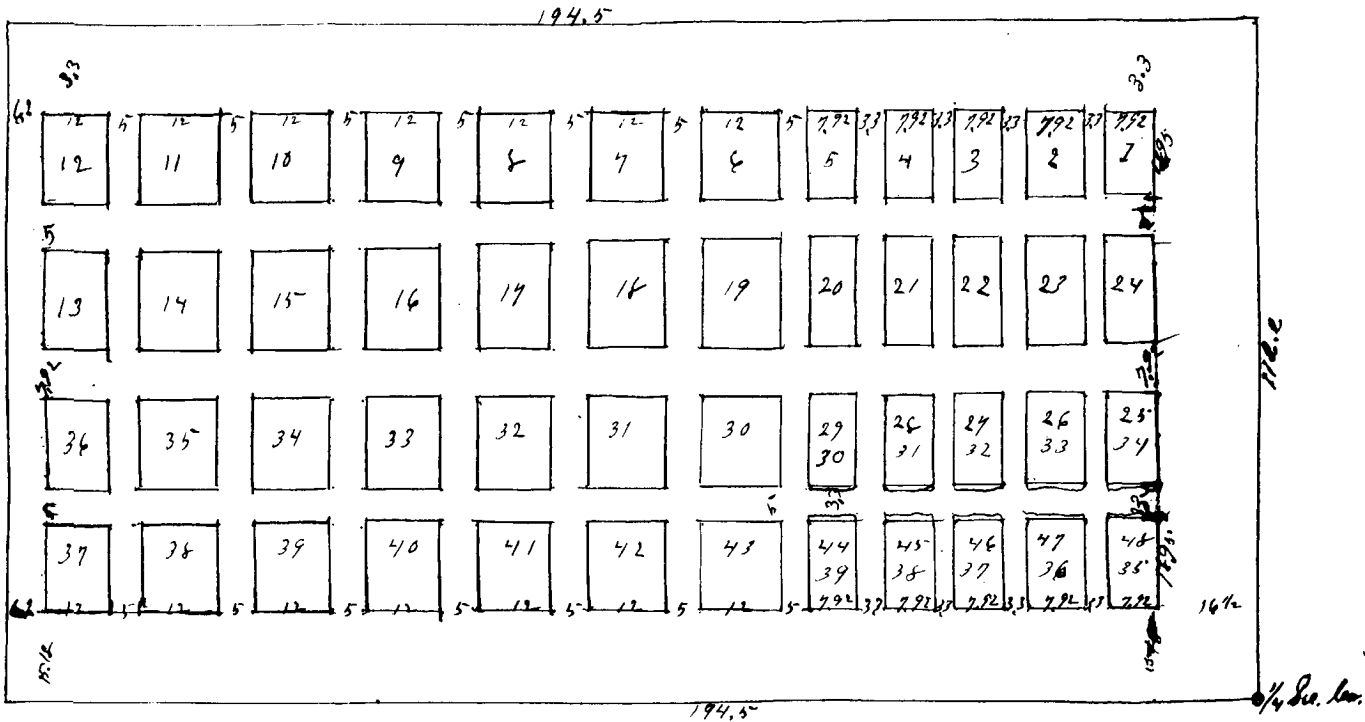 194.5
3.3 3.3
6.2 12 5 12 5 12 5 12 5 12 5 12 5 12 5 7.92 3.3 7.92 3.3 7.92 3.3 7.92 3.3 7.92
12 11 10 9 8 7 6 5 4 3 2 1
5
13 14 15 16 17 18 19 20 21 22 23 24
7.92 7.92
36 35 34 33 32 31 30 29 28 27 26 25
30 31 32 33 34
5 3.3 3.3
37 38 39 40 41 42 43 44 45 46 47 48
39 38 37 36 35
6.2 12 5 12 5 12 5 12 5 12 5 12 5 12 5 7.92 3.3 7.92 3.3 7.92 3.3 7.92 3.3 7.92 16 1/2
15.18
194.5
1/4 Sec. Cor.